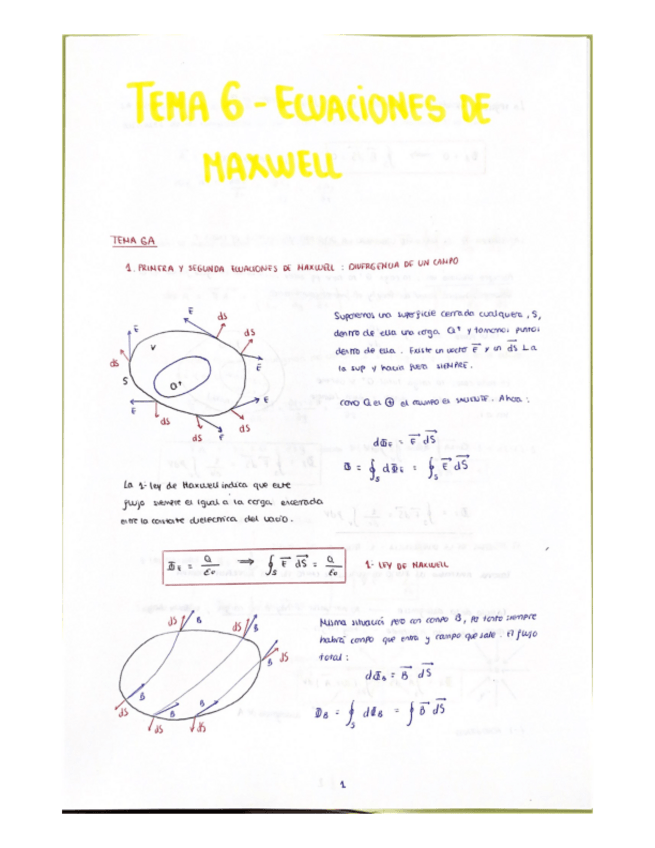 TEMA 6 - ECUACIONES DE
MAXWELL
TEMA 6A
1. PRIMERA Y SEGUNDA ECUACIONES DE MAXWELL : DIVERGENCIA DE UN CAMPO
Suponemos una superficie cerrada cualquiera, S,
dentro de ella una carga Q⁺ y tomamos puntos
dentro de ella. Existe un vector E⃗ y un dS⃗ ⊥ a
la sup y hacia fuera SIEMPRE.
como Q es ⊕ el campo es saliente. Ahora :
E dS
E dS
dS V E
E
S Q⁺
E E
dS dS E dS
dΦE = E⃗ dS⃗
Φ = ∮S dΦE = ∮S E⃗ dS⃗
La 1ª ley de Maxwell indica que este
flujo siempre es igual a la carga encerrada
entre la constante dieléctrica del vacío.
ΦE = Q/ε0 ⟹ ∮S E⃗ dS⃗ = Q/ε0 1ª LEY DE MAXWELL
Misma situación pero con campo B, por tanto siempre
habrá campo que entra y campo que sale. El flujo
total :
dS B dS B
B dS
B B B
dS dS dS
dΦB = B⃗ dS⃗
ΦB = ∮S dΦB = ∮ B⃗ dS⃗
1